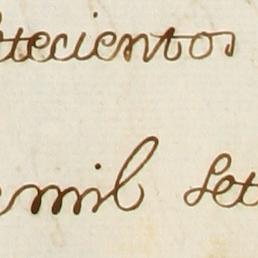 etecientos
mil Set